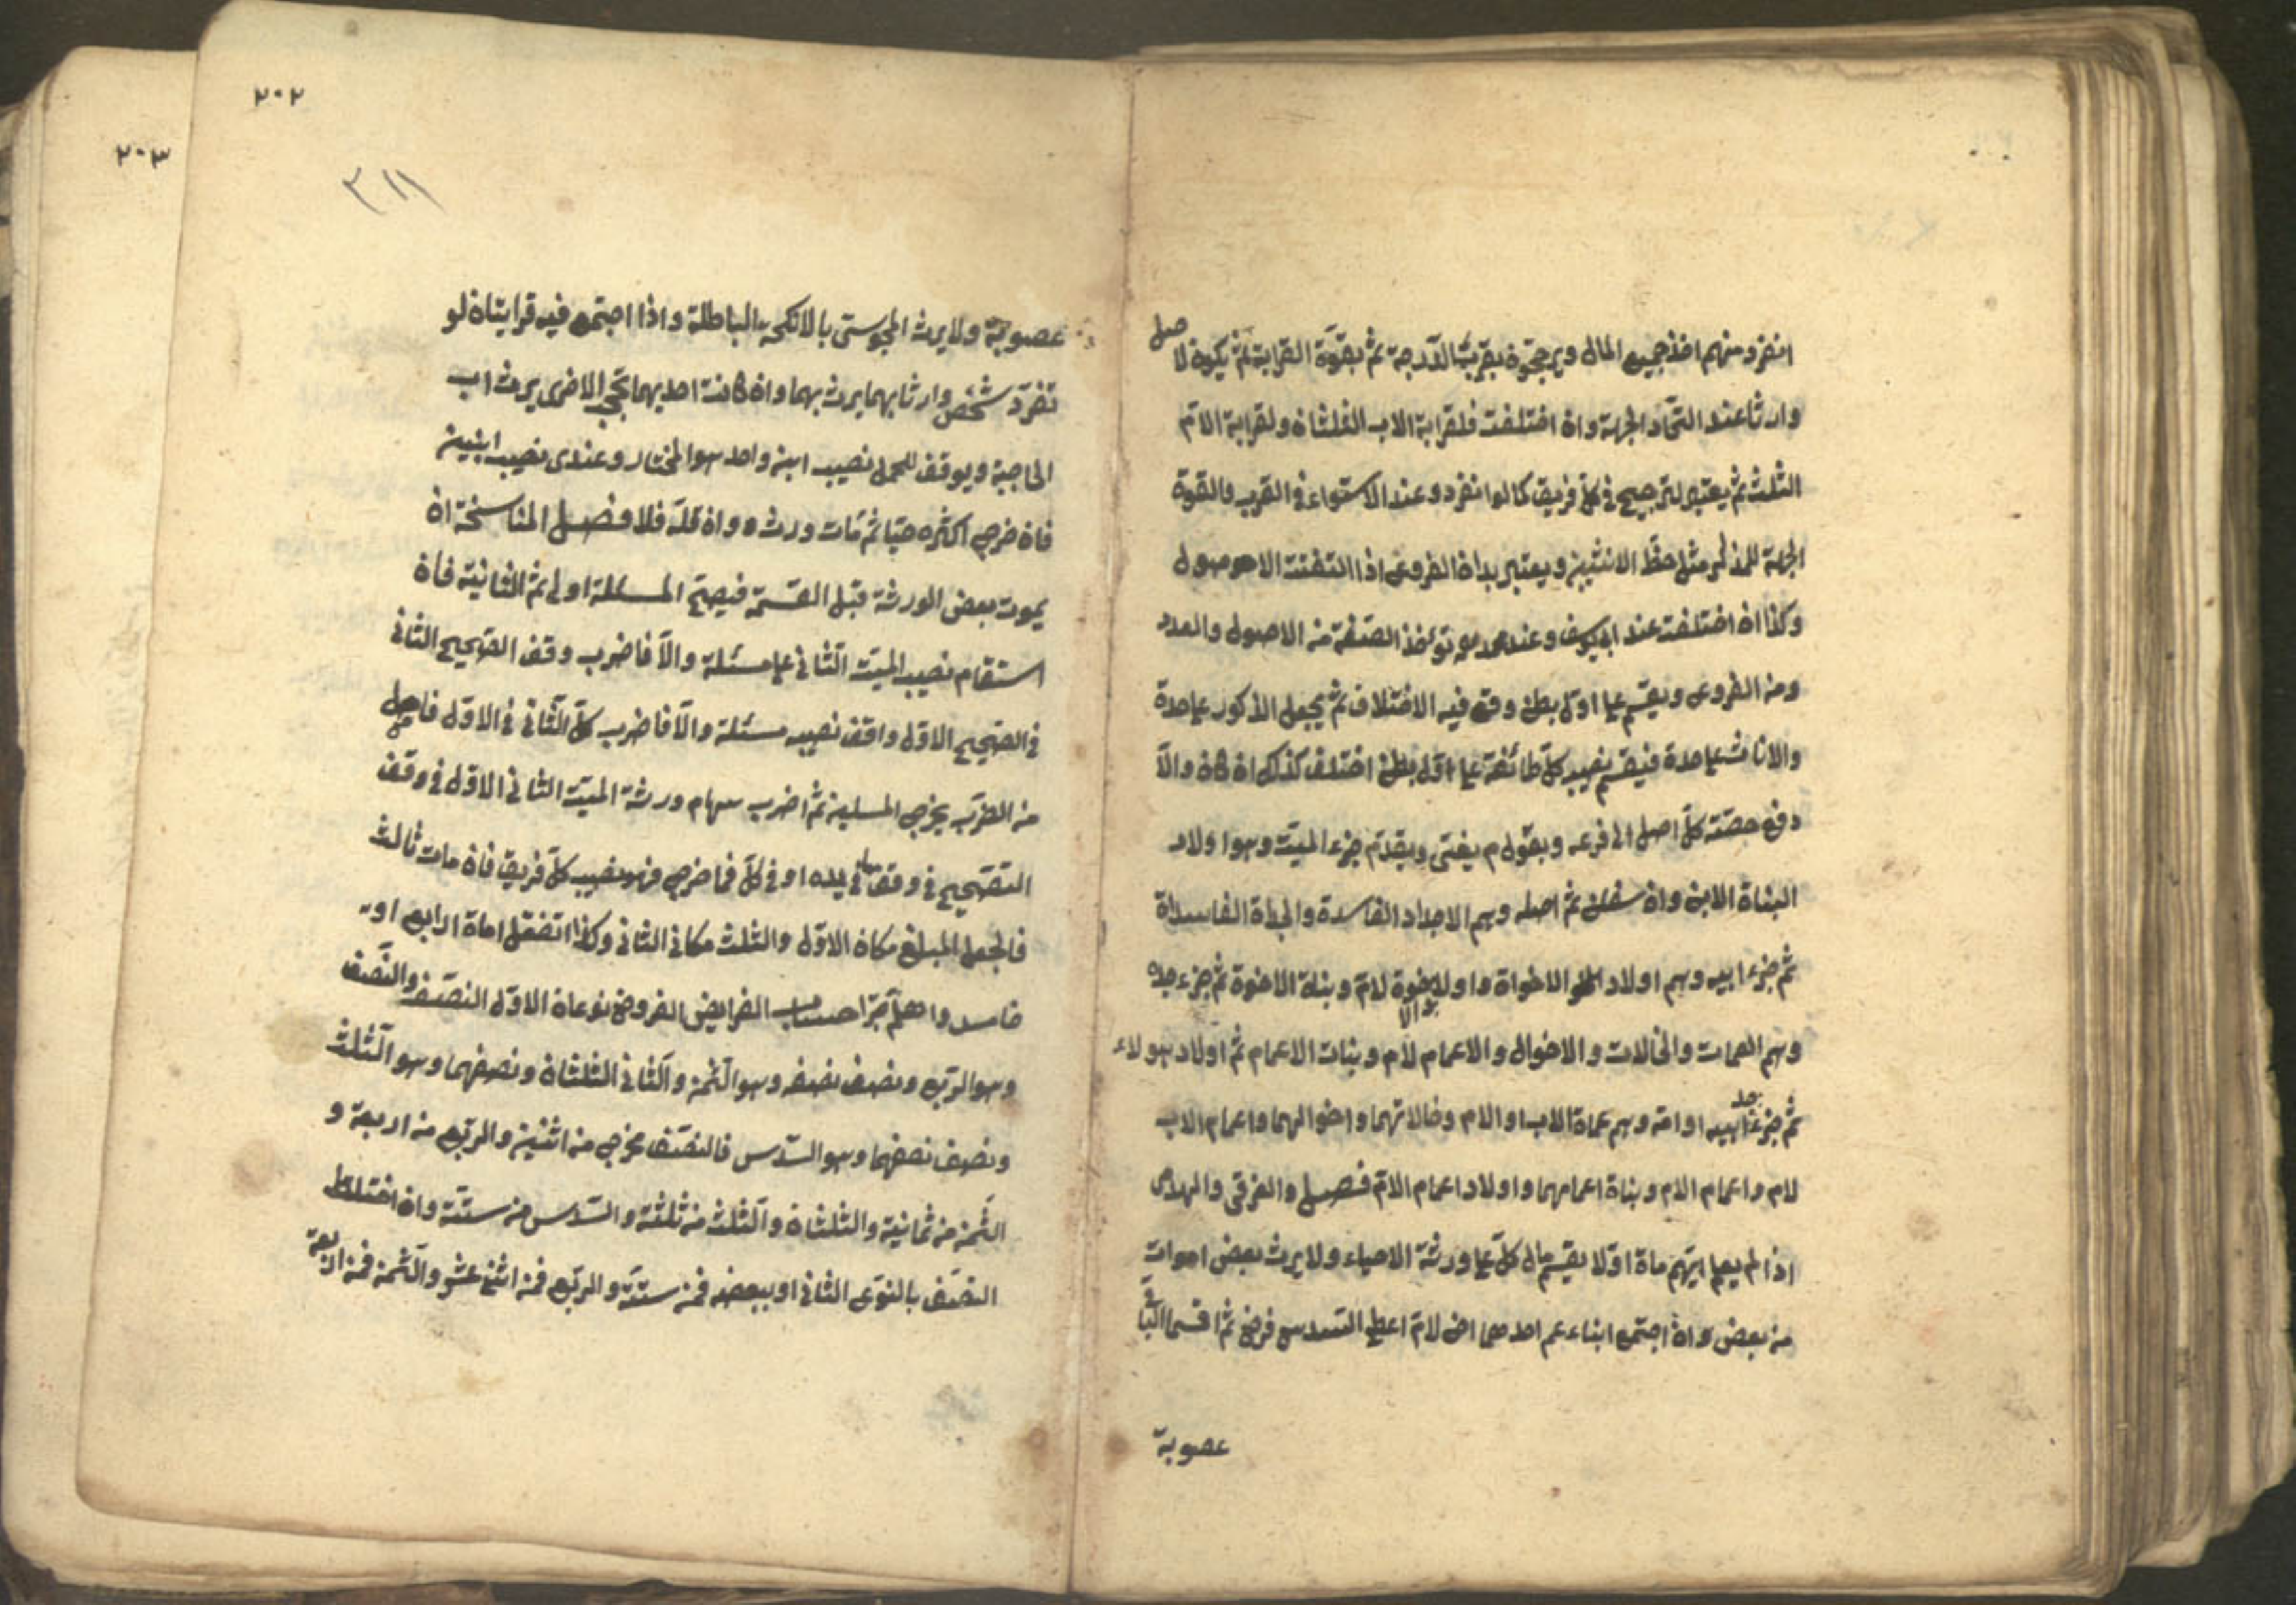 انفرد منهم اخذ جميع المال ويرجحوة بقرب الدرجة ثم بقوة القرابة ثم يكوة لاصل
وارثا عند اتحاد الجهة واة اختلفت فلقرابة الاب الثلثاة ولقرابة الام
الثلث ثم يعتبر لترجيح في كل فريق كما لو انفرد وعند الاستواء في القرب والقوة
الجهة للذكر مثل حظ الانثيين ويعتبر بداة الفروع اذا اتفقت الاصول
وكذا اة اختلفت عند ابي يوسف وعند محمد توئخذ الصفة من الاصول والعدد
ومن الفروع ويقسم على اول بطن وقع فيه الاختلاف ثم يجعل الذكور على حدة
والاناث على حدة فيقسم نصيب كل طائفة على اول بطن اختلف كذلك اة كاة والا
دفع حصة كل اصل الى فرعه وبقول م يفتى ويقدم جزء الميت وهو اولاد
البناة الابن واة سفلن ثم اصله وهم الاجداد الفاسدة والجداة الفاسداة
ثم جزء ابيه وهم اولاد الاخواة واولاد الاخوة لام وبناة الاخوة ثم جزء جده
وهم العمات والخالات والاخوال والاعمام لام وبنات الاعمام ثم اولاد هولاء
ثم جزء جد ابيه او امه وهم عماة الاب او الام وخالاتهما واخوالهما واعمام الاب
لام واعمام الام وبناة اعمامهما واولاد اعمام الام فصل والغرقى والهدمى
اذا لم يعلم ايهم ماة اولا يقسم مال كل على ورثة الاحياء ولا يرث بعض اموات
من بعض واة اجتمع ابناء عم احدهما اخ لام اعطى السدس فرض ثم اقسما الباقي
عصوبة
٢٠٢
٢٠٣
٣١١
عصوبة ولا يرث المجوسي بالانكحة الباطلة واذا اجتمع فيه قرابتاة لو
تفرد شخص وارثا بهما يرث بهما واة كانت احديهما تحجب الاخرى يرث اب
الحاجبة ويوقف للحمل نصيب ابن واحد هو المختار وعندى نصيب ابنين
فاة خرج اكثره حيا ثم مات ورث واة قله فلا فصل المناسخة اة
يموت بعض الورثة قبل القسمة فيصح المسئلة اولى ثم الثانية فاة
استقام نصيب الميت الثاني على مسئلة والا فاضرب وقف الصحيح الثاني
في الصحيح الاول واقف نصيبه مسئلة والا فاضرب كل الثاني في الاول فاحصل
من الضرب يخرج المسلين ثم اضرب سهام ورثة الميت الثاني الاول في وقف
التصحيح في وقف ما في يده او في كل فما خرج فهو نصيب كل فريق فاة مات ثالث
فالجعل المبلغ مكاة الاول والثلث مكاني الثاني وكذا تفعل اماة الرابع او
خامس واعلم حساب الفرايض الفروض نوعاة الاول النصف والنصف
وهو الربع ونصف نصفه وهو الثمن والثاني الثلثاة ونصفهما وهو الثلث
ونصف نصفهما وهو السدس فالنصف يخرج من اثنين والربع من اربعة و
الثمن من ثمانية والثلثاة والثلث من ثلثة والسدس من ستة واة اختلط
النصف بالنوع الثاني او ببعضه فمن ستة والربع فمن اثنى عشر والثمن فمن اربعة